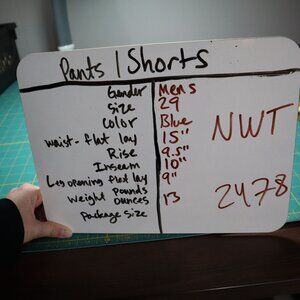 Pants | Shorts
Gender Mens
Size 29
Color Blue
waist - flat lay 15"
Rise 9.5"
Inseam 10"
Leg opening flat lay 9"
Weight Pounds
ounces 13
Package Size
NWT
2478